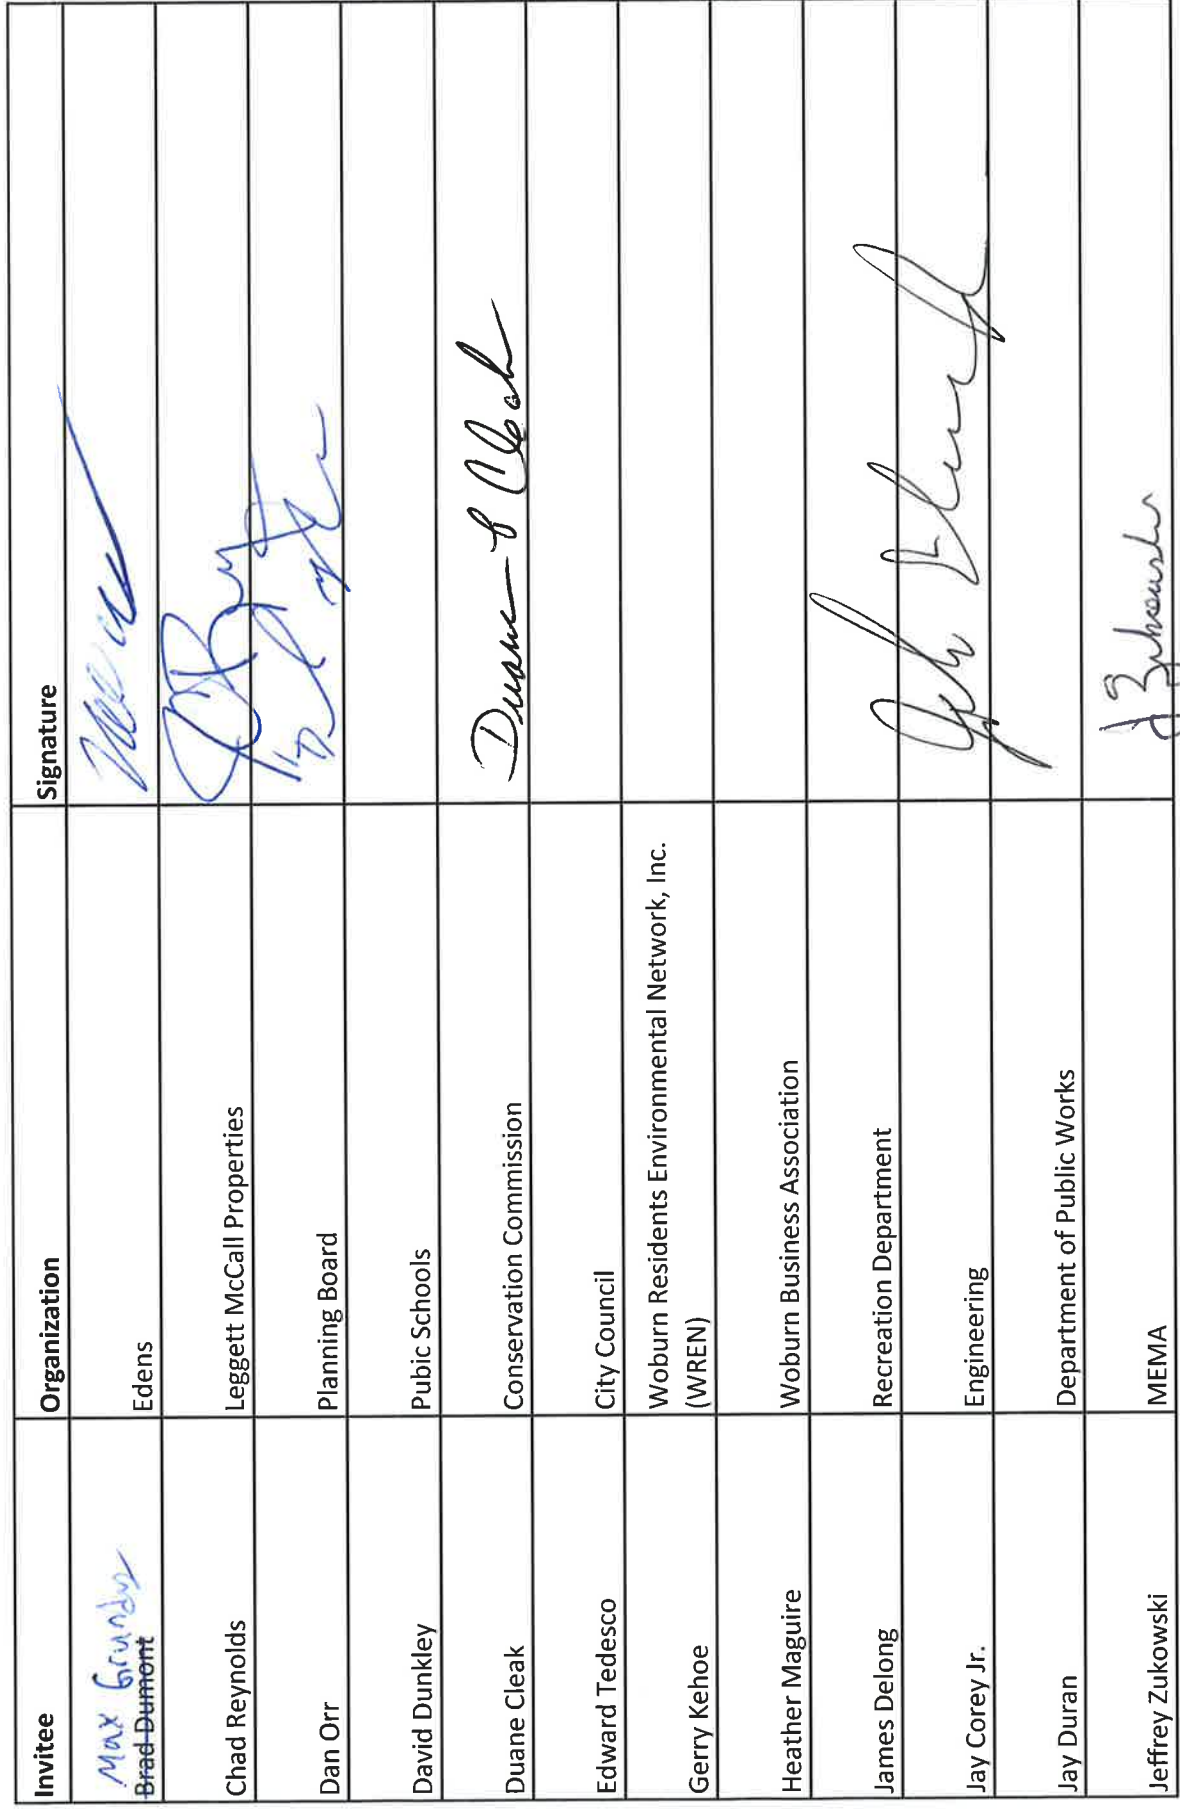 Invitee Organization Signature
Max
Brad Dumont Edens
Chad Reynolds Leggett McCall Properties
Dan Orr Planning Board
David Dunkley Pubic Schools
Duane Cleak Conservation Commission Duane Cleak
Edward Tedesco City Council
Gerry Kehoe Woburn Residents Environmental Network, Inc.
(WREN)
Heather Maguire Woburn Business Association
James Delong Recreation Department
Jay Corey Jr. Engineering
Jay Duran Department of Public Works
Jeffrey Zukowski MEMA J Zukowski